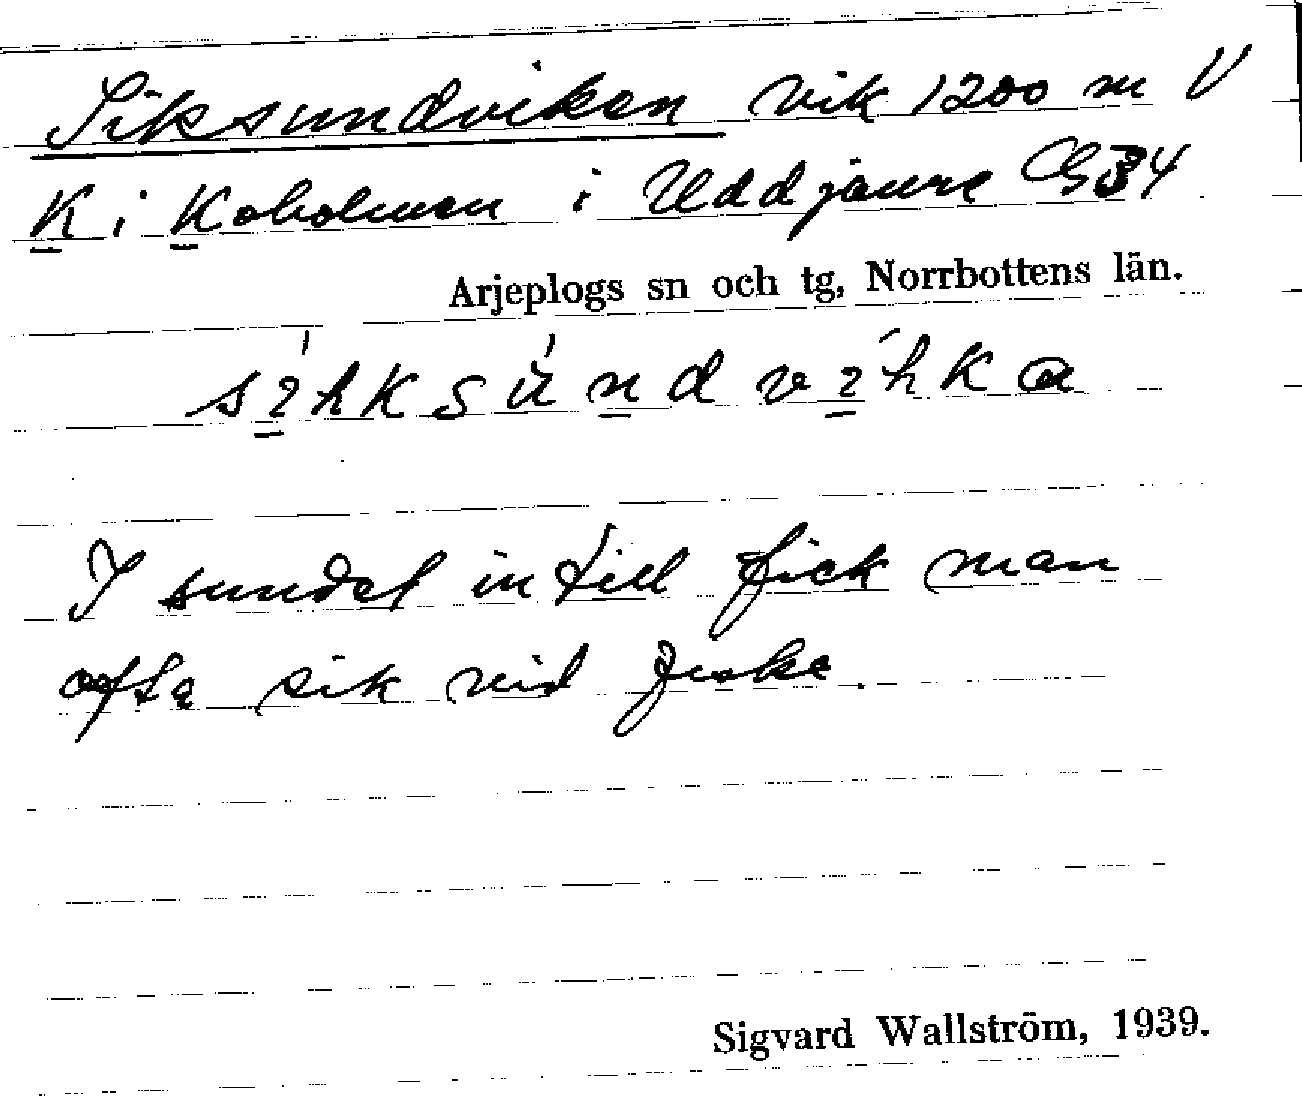 Siksundviken vik 1200 m V
K i Koholmen i Uddjaure G34
Arjeplogs sn och tg, Norrbottens län.
I sundet intill fick man
ofta sik vid fiske.
Sigvard Wallström, 1939.